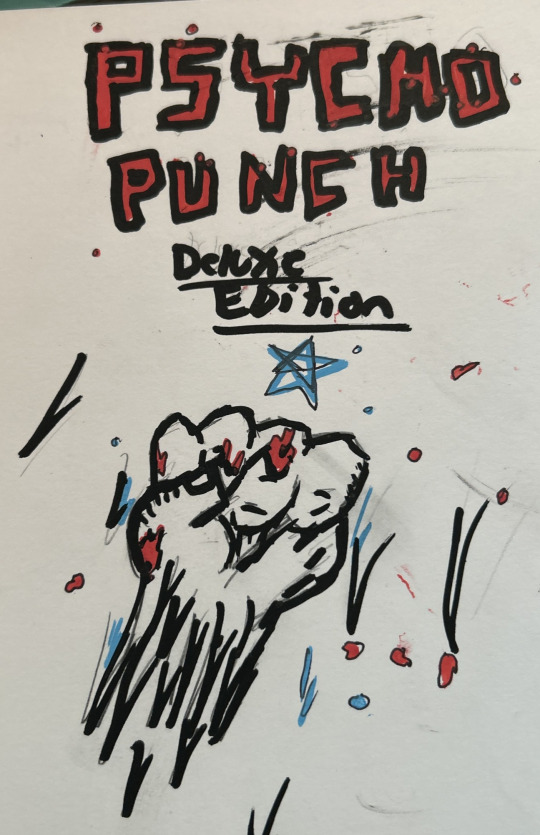 PSYCHO
PUNCH
Deluxe
Edition